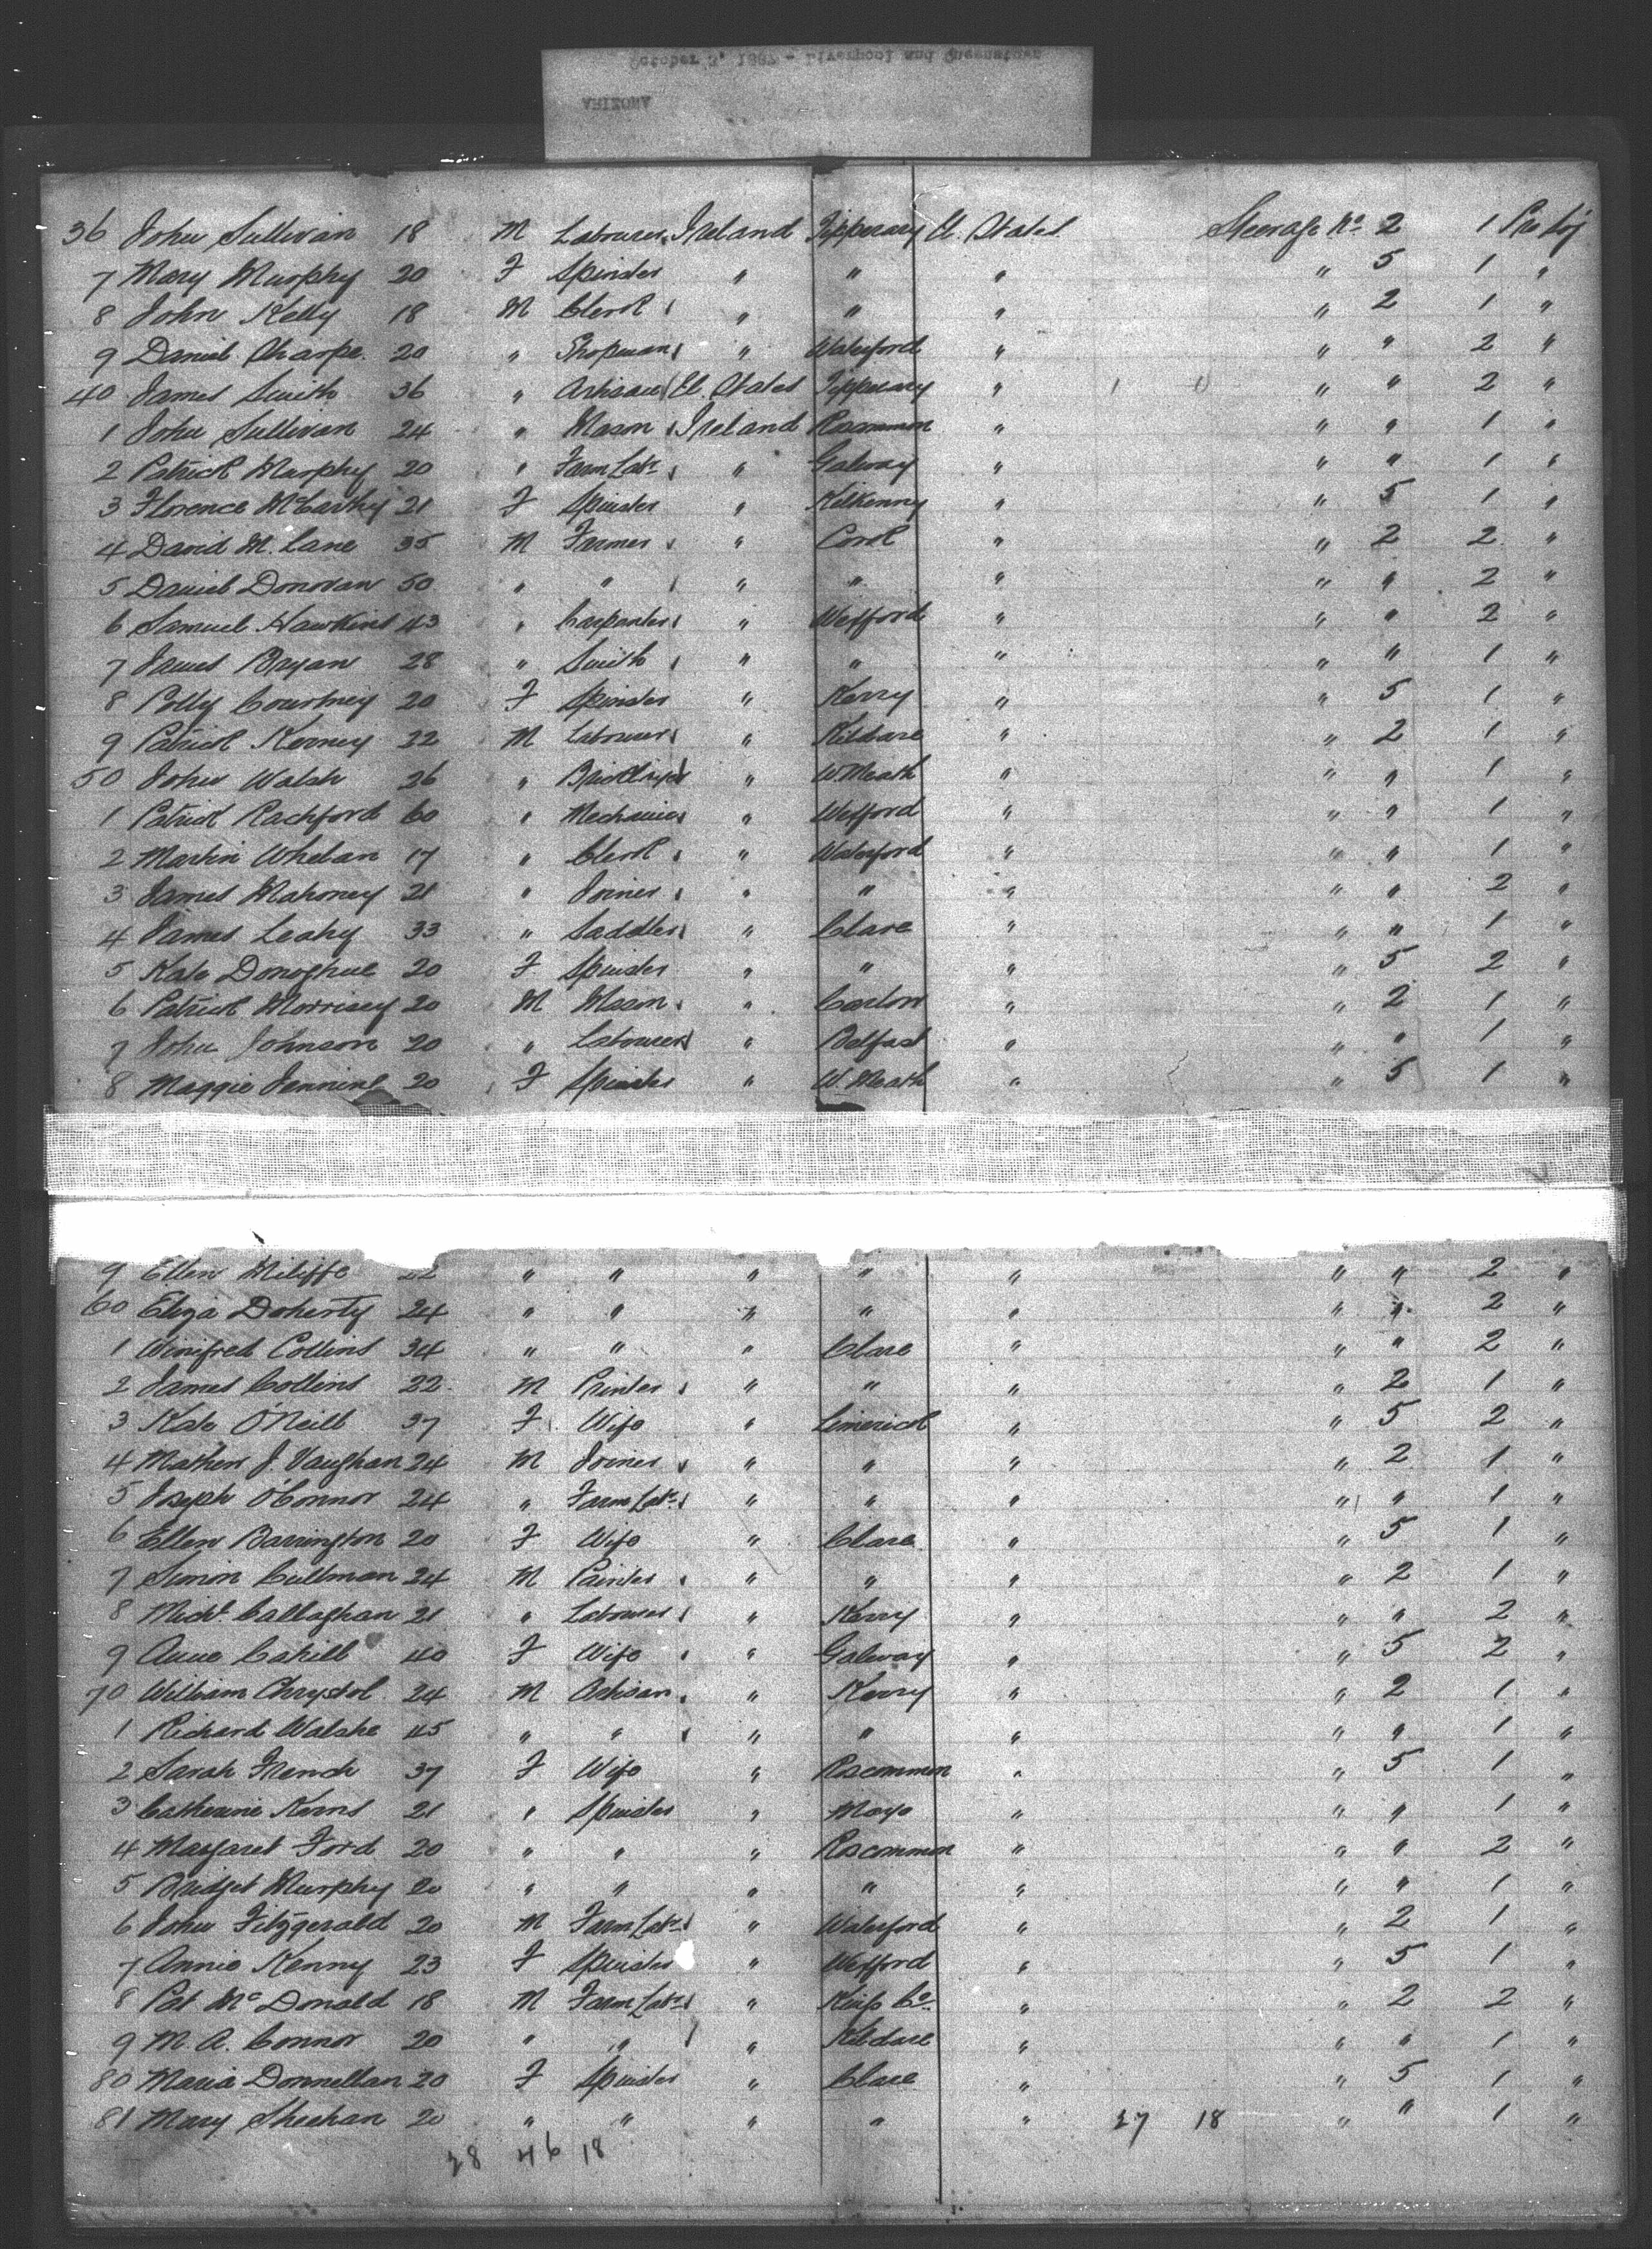 October 5, 1887 - Liverpool and Queenstown
ARIZONA
36 John Sullivan 18 M Labourer Ireland Tipperary U. States Steerage No. 2 1 Pro Soj
7 Mary Murphy 20 F Spinster " " " " 5 1 "
8 John Kelly 18 M Clerk " " " " 2 1 "
9 Daniel Sharpe 20 " Shopman " Waterford " " " 2 "
40 James Smith 36 " Artisan U. States Tipperary " 1 0 " " 2 "
1 John Sullivan 24 " Mason Ireland Roscommon " " " 1 "
2 Patrick Murphy 20 " Farm Labr " Galway " " " 1 "
3 Florence McCarthy 21 F Spinster " Kilkenny " " 5 1 "
4 David M. Lane 35 M Farmer " Cork " " 2 2 "
5 Daniel Donovan 50 " " " " " " " 2 "
6 Samuel Hawkins 43 " Carpenter " Wexford " " " 2 "
7 James Bryan 28 " Smith " " " " " 1 "
8 Polly Courtney 20 F Spinster " Kerry " " 5 1 "
9 Patrick Kenney 22 M Labourer " Kildare " " 2 1 "
50 John Walsh 26 " Bricklayer " W. Meath " " " 1 "
1 Patrick Rachford 60 " Mechanic " Wexford " " " 1 "
2 Martin Whelan 17 " Clerk " Waterford " " " 1 "
3 James Mahoney 21 " Joiner " " " " " 2 "
4 James Leahy 33 " Saddler " Clare " " " 1 "
5 Kate Donoghue 20 F Spinster " " " " 5 2 "
6 Patrick Morrisey 20 M Mason " Carlow " " 2 1 "
7 John Johnson 20 " Labourer " Belfast " " " 1 "
8 Maggie Jennins 20 F Spinster " W. Meath " " 5 1 "
9 Ellen 22 " " " " " " " 2 "
60 Eliza Doherty 24 " " " " " " " 2 "
1 Winifred Collins 34 " " " Clare " " " 2 "
2 James Collins 22 M Printer " " " " 2 1 "
3 Kate O'Neill 37 F Wife " Limerick " " 5 2 "
4 Mathew J. Vaughan 24 M Joiner " " " " 2 1 "
5 Joseph O'Connor 24 " Farm Labr " " " " " 1 "
6 Ellen Barrington 20 F Wife " Clare " " 5 1 "
7 Simon Cullman 24 M Painter " " " " 2 1 "
8 Michl. Callaghan 21 " Labourer " Kerry " " " 2 "
9 Anne Cahill 40 F Wife " Galway " " 5 2 "
70 William Chrystol 24 M Artisan " Kerry " " 2 1 "
1 Richard Walshe 45 " " " " " " " 1 "
2 Sarah French 37 F Wife " Roscommon " " 5 1 "
3 Catherine Kerns 21 " Spinster " Mayo " " " 1 "
4 Margaret Ford 20 " " " Roscommon " " " 2 "
5 Bridget Murphy 20 " " " " " " " 1 "
6 John Fitzgerald 20 M Farm Labr " Waterford " " 2 1 "
7 Annie Kenny 23 F Spinster " Wexford " " 5 1 "
8 Pat McDonald 18 M Farm Labr " Kings Co. " " 2 2 "
9 M. A. Connor 20 " " " Kildare " " " 1 "
80 Maria Donnellan 20 F Spinster " Clare " " 5 1 "
81 Mary Sheehan 20 " " " " " 27 18 " " 1 "
28 46 18